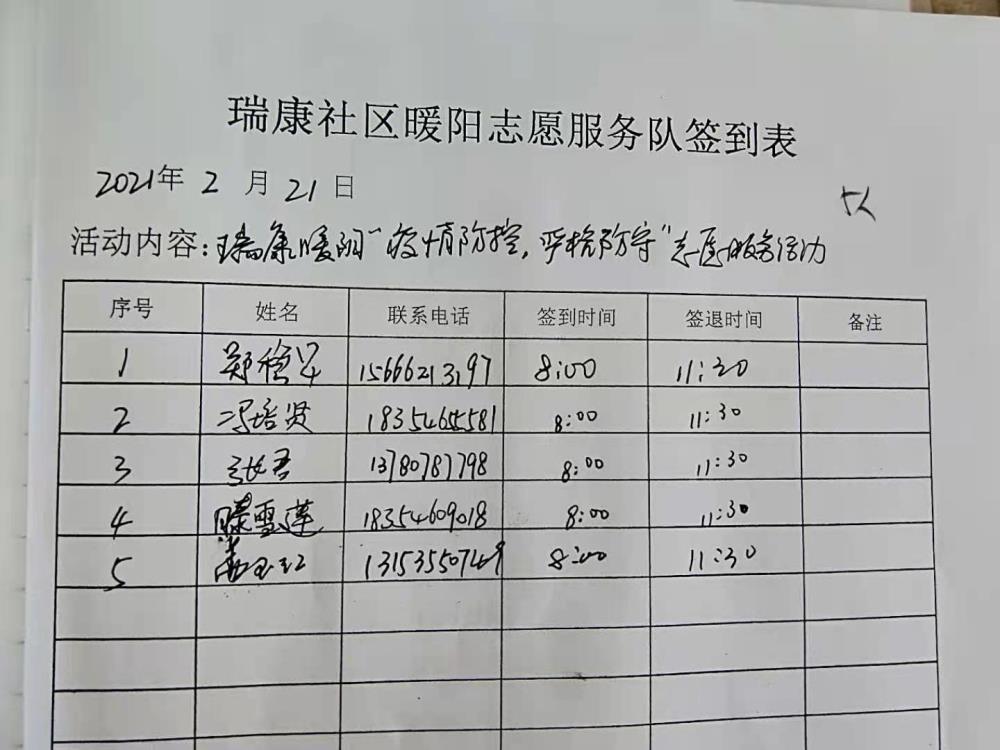 瑞康社区暖阳志愿服务队签到表
2021年 2 月 21 日
活动内容：瑞康暖阳“疫情防控，严格防守”志愿服务活动
序号 姓名 联系电话 签到时间 签退时间 备注
1 郑 15666213197 8:00 11:30
2 冯培贤 18354655581 8:00 11:30
3 张君 13780787798 8:00 11:30
4 滕雪莲 18354609018 8:00 11:30
5 8:00 11:30